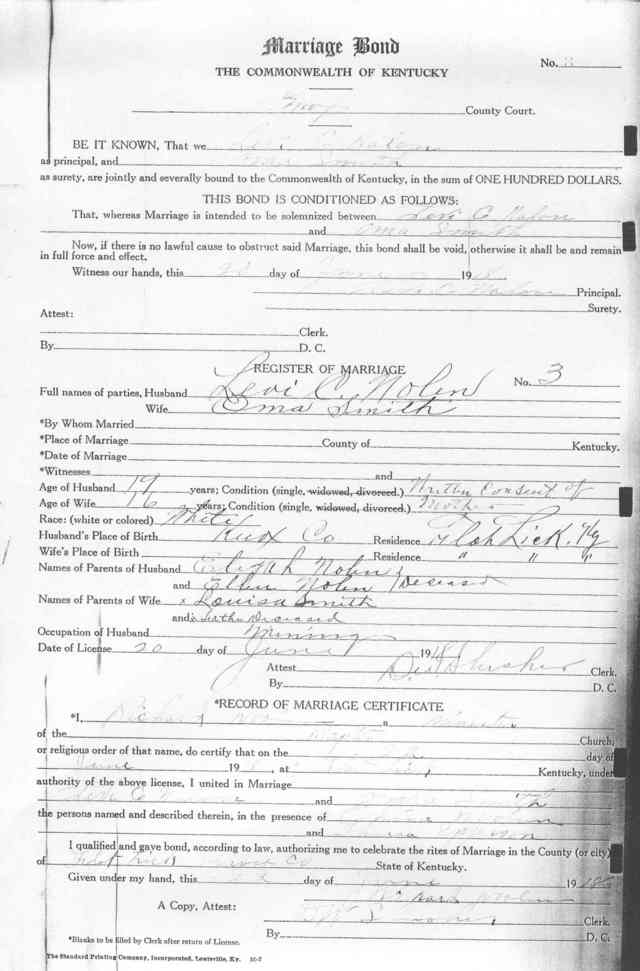 Marriage Bond
No. 3
THE COMMONWEALTH OF KENTUCKY
Knox County Court.
BE IT KNOWN, That we Levi C Nolen
as principal, and Oma Smith
as surety, are jointly and severally bound to the Commonwealth of Kentucky, in the sum of ONE HUNDRED DOLLARS.
THIS BOND IS CONDITIONED AS FOLLOWS:
That, whereas Marriage is intended to be solemnized between Levi C Nolen
and Oma Smith
Now, if there is no lawful cause to obstruct said Marriage, this bond shall be void, otherwise it shall be and remain
in full force and effect.
Witness our hands, this 20 day of June 1918
Levi C Nolen Principal.
Surety.
Attest:
Clerk.
By D. C.
REGISTER OF MARRIAGE
No. 3
Full names of parties, Husband Levi C. Nolen
Wife Oma Smith
*By Whom Married
*Place of Marriage County of Kentucky.
*Date of Marriage
*Witnesses and
Age of Husband 19 years; Condition (single, widowed, divorced.) Written Consent of
Age of Wife 16 years; Condition (single, widowed, divorced.) Mother
Race: (white or colored) White
Husband's Place of Birth Knox Co Residence Flat Lick, Ky
Wife's Place of Birth " Residence " " "
Names of Parents of Husband Elijah Nolen
and Ellen Nolen / Deseased
Names of Parents of Wife x Louisa Smith
and Deseased
Occupation of Husband Mining
Date of License 20 day of June 1918
Attest Clerk.
By D. C.
*RECORD OF MARRIAGE CERTIFICATE
*I, Richard a Minister
of the Church,
or religious order of that name, do certify that on the day of
June 19 8, at Kentucky, under
authority of the above license, I united in Marriage
Levi C and
the persons named and described therein, in the presence of
and
I qualified and gave bond, according to law, authorizing me to celebrate the rites of Marriage in the County (or city)
of Flat Lick Knox Co State of Kentucky.
Given under my hand, this day of June 1918
Richard
A Copy, Attest: Clerk.
By D. C.
*Blanks to be filled by Clerk after return of License.
The Standard Printing Company, Incorporated, Louisville, Ky.